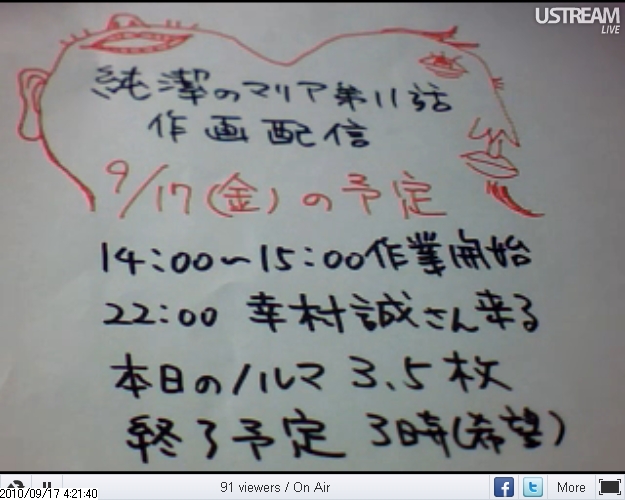 USTREAM
LIVE
純潔のマリア第11話
作画配信
9/17(金)の予定
14:00～15:00作業開始
22:00 幸村誠さん来る
本日のノルマ 3.5枚
終了予定 3時(希望)
91 viewers / On Air
More
2010/09/17 4:21:40